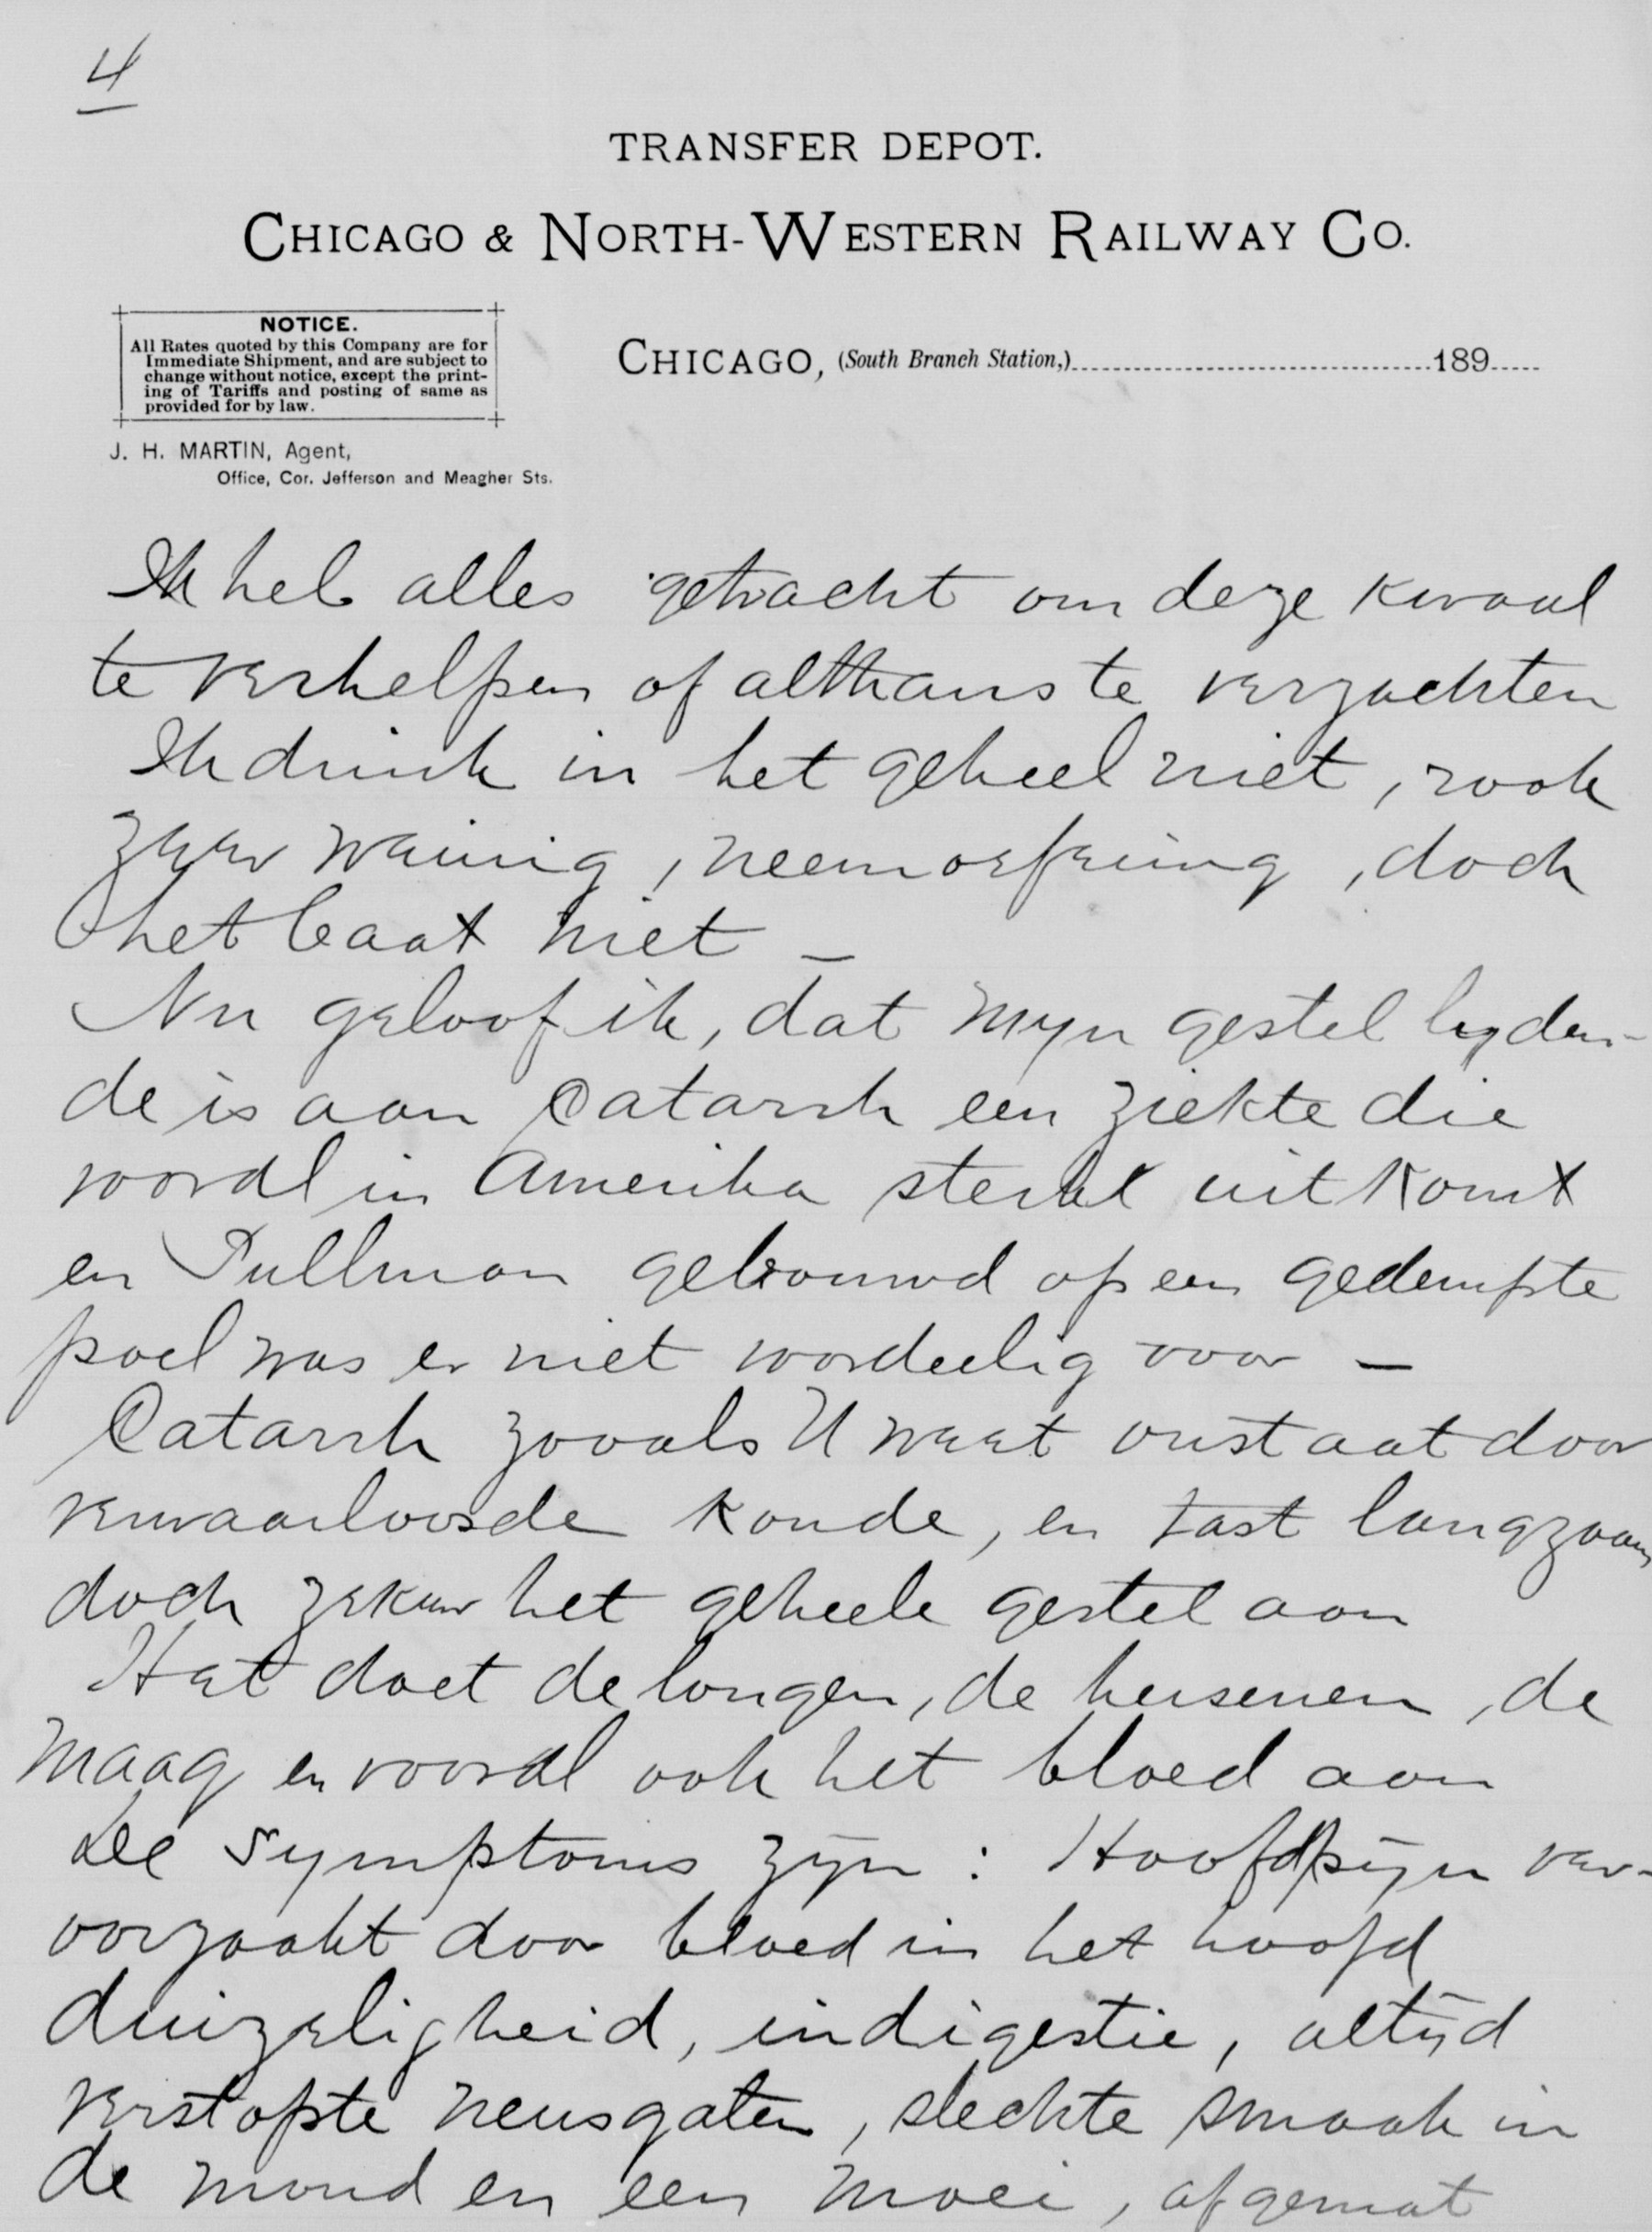 4
TRANSFER DEPOT.
CHICAGO & NORTH-WESTERN RAILWAY CO.
NOTICE.
All Rates quoted by this Company are for
Immediate Shipment, and are subject to
change without notice, except the print-
ing of Tariffs and posting of same as
provided for by law.
CHICAGO, (South Branch Station,) 189
J. H. MARTIN, Agent,
Office, Cor. Jefferson and Meagher Sts.
Ik heb alles getracht om deze kwaal
te verhelpen of althans te verzachten
Ik drink in het geheel niet, rook
zeer weinig, neem oefening, doch
het baat niet —
Nu geloof ik, dat myn gestel lyden-
de is aan Catarrh een ziekte die
vooral in Amerika sterk uitkomt
en Pullman gebouwd op een gedempte
poel was er niet voordeelig voor —
Catarrh zooals U weet onstaat door
verwaarloosde koude, en tast langzaam
doch zeker het geheele gestel aan
Het doet de longen, de hersenen, de
maag en vooral ook het bloed aan
De symptoms zyn : Hoofdpijn ver-
oorzaakt door bloed in het hoofd
duizeligheid, indigestie, altijd
verstopte neusgaten, slechte smaak in
de mond en een moei, afgemat